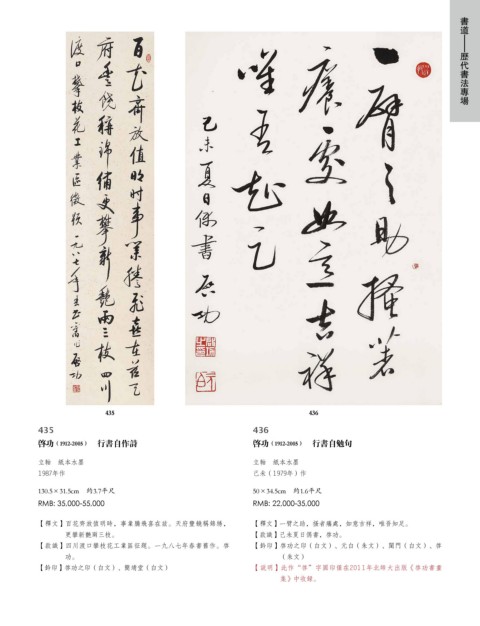 書道——歷代書法專場
百花齊放值明時事業騰飛喜在茲天
府豐饒稱錦繡更攀新艷兩三枝 四川
渡口攀枝花工業區徵題 一九八七年 啓功
一臂之助搔著
癢處如意吉祥
唯吾知足
己未夏日偶書 啓功
435
436
435
啓功（1912-2005） 行書自作詩
立軸 紙本水墨
1987年作
130.5×31.5cm 約3.7平尺
RMB: 35,000-55,000
【釋文】百花齊放值明時，事業騰飛喜在茲。天府豐饒稱錦繡，
更攀新艷兩三枝。
【款識】四川渡口攀枝花工業區征題。一九八七年春書舊作。啓
功。
【鈐印】啓功之印（白文）、簡靖堂（白文）
436
啓功（1912-2005） 行書自勉句
立軸 紙本水墨
己未（1979年）作
50×34.5cm 約1.6平尺
RMB: 22,000-35,000
【釋文】一臂之助，搔著癢處，如意吉祥，唯吾知足。
【款識】己未夏日偶書，啓功。
【鈐印】啓功之印（白文）、元白（朱文）、閉門（白文）、啓
（朱文）
【說明】此作“啓”字圓印僅在2011年北師大出版《啓功書畫
集》中收錄。